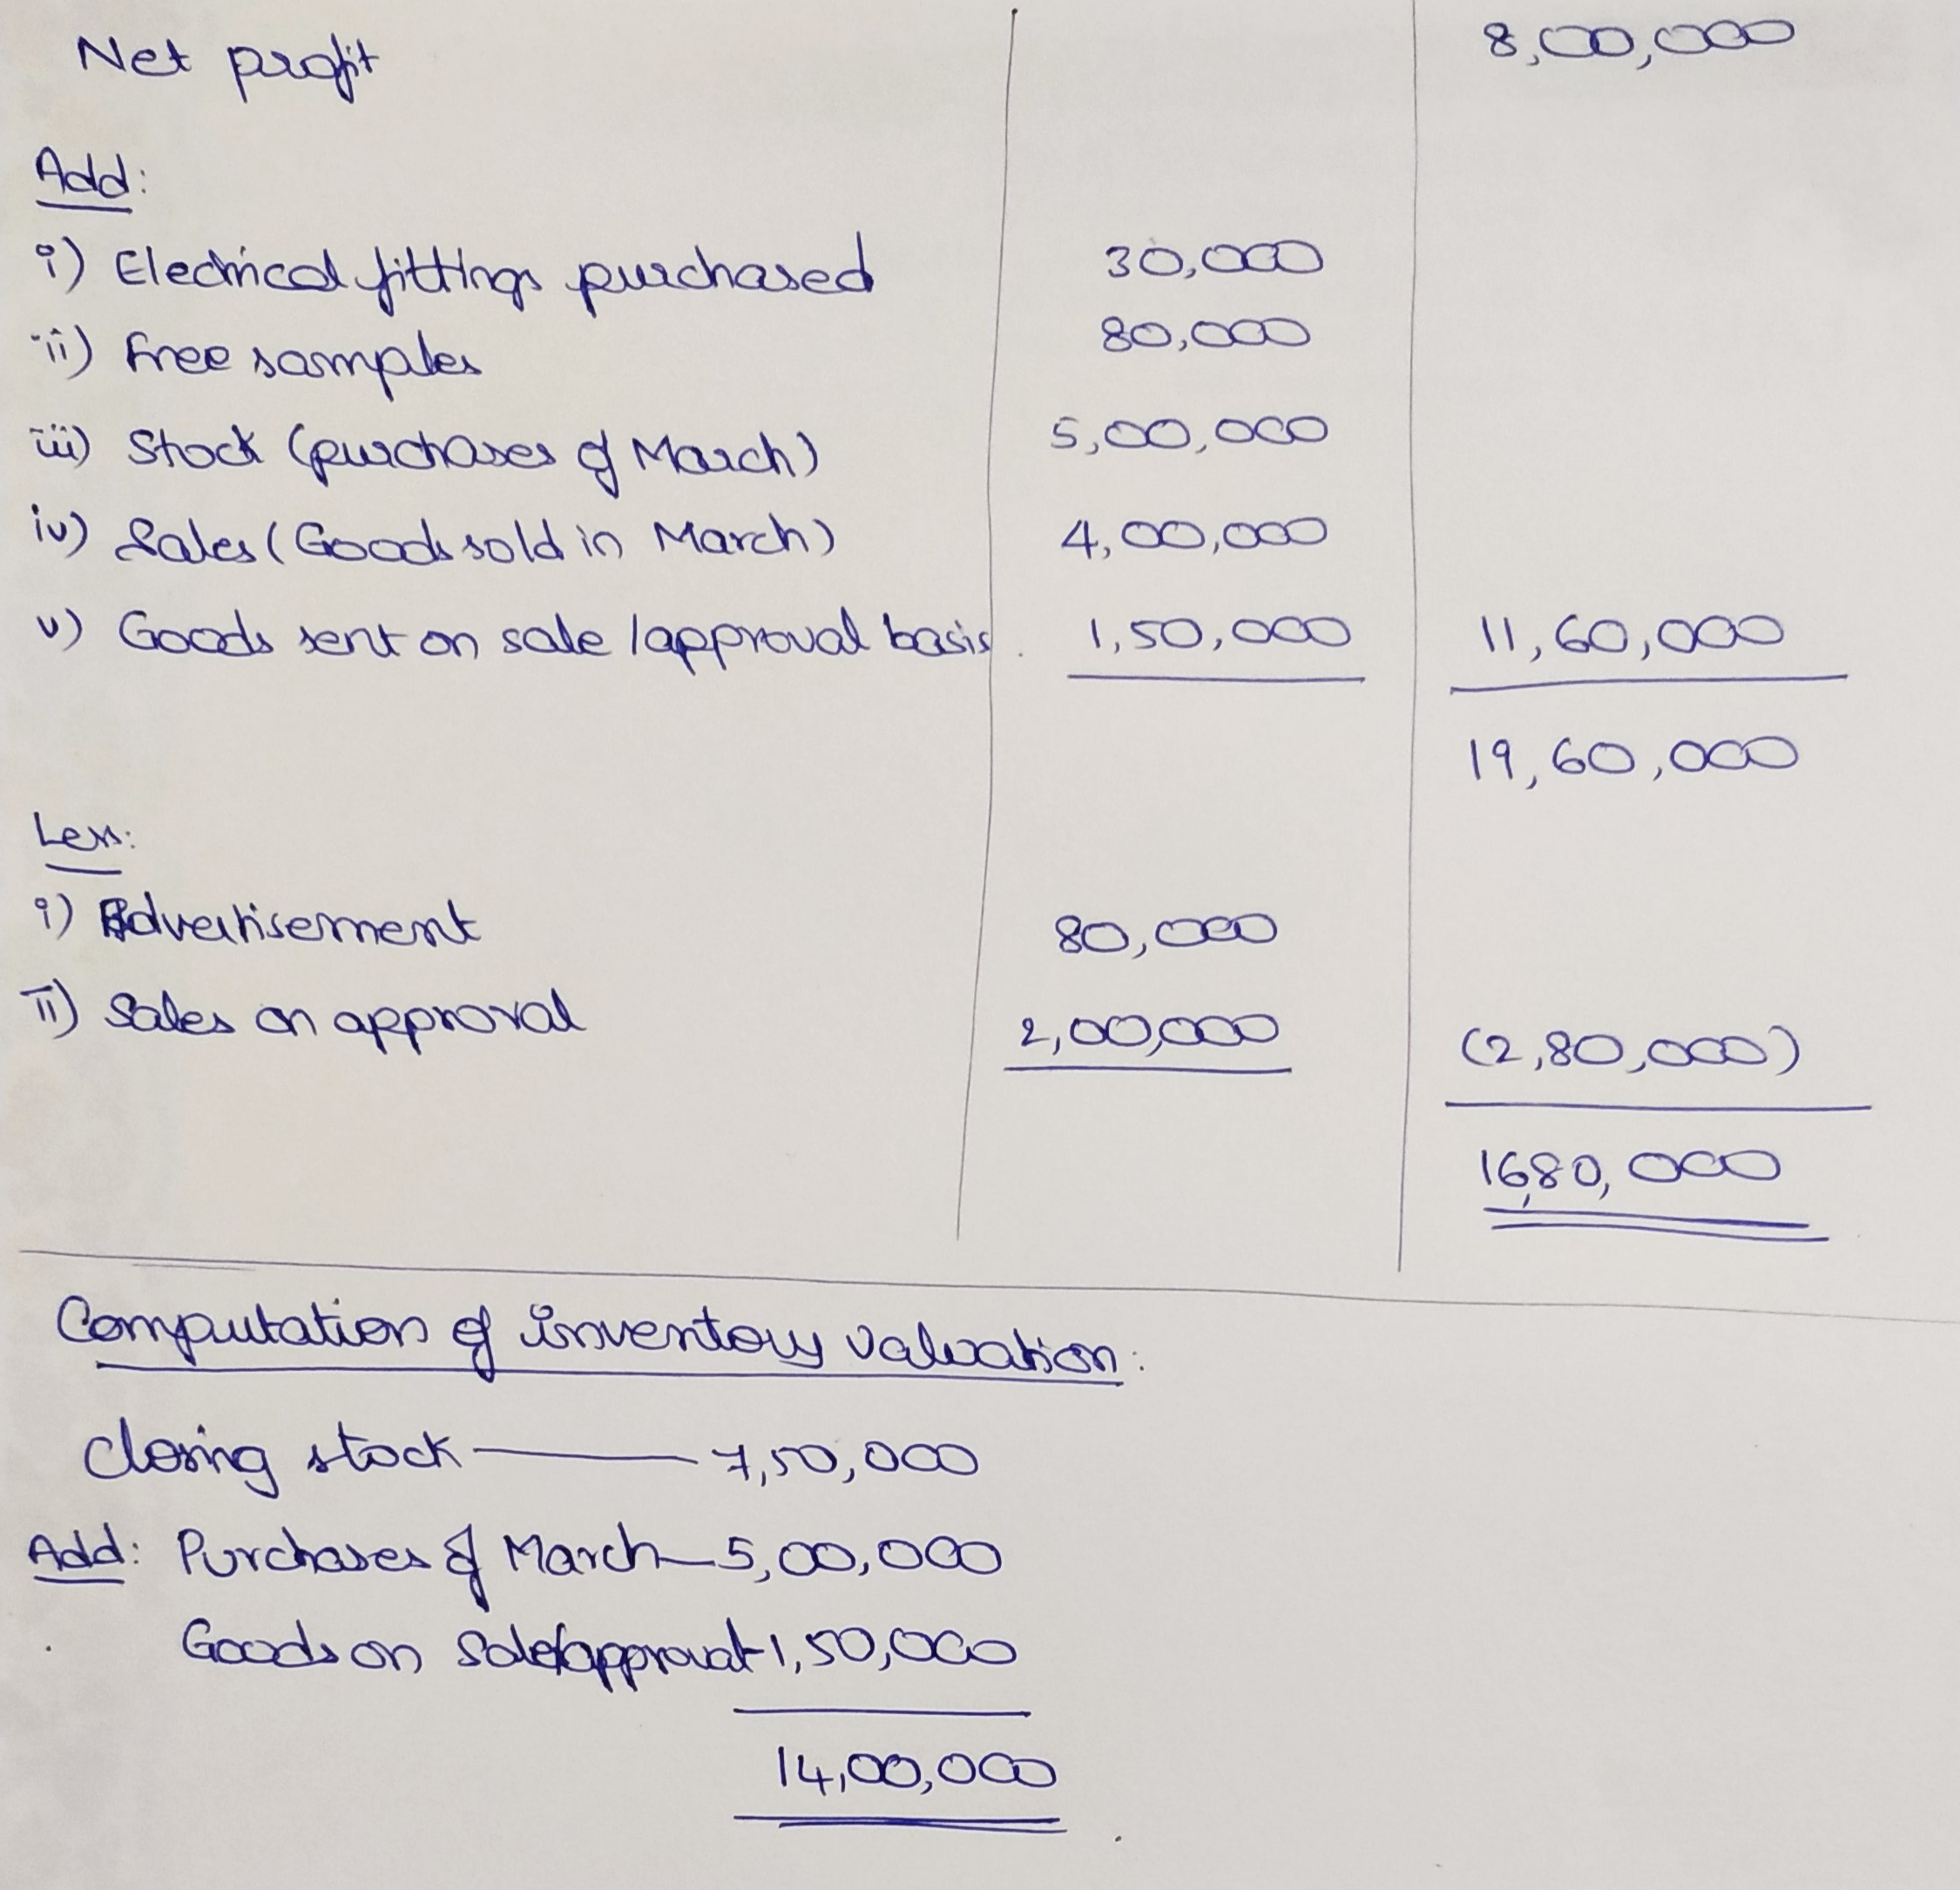 Net profit 8,00,000
Add:
i) Electrical fittings purchased 30,000
ii) Free samples 80,000
iii) Stock (purchases of March) 5,00,000
iv) Sales (Goods sold in March) 4,00,000
v) Goods sent on sale /approval basis. 1,50,000 11,60,000
19,60,000
Less:
i) Advertisement 80,000
ii) Sales on approval 2,00,000 (2,80,000)
16,80,000
Computation of inventory valuation:
Closing stock — 7,50,000
Add: Purchases of March — 5,00,000
Goods on Sale/approval - 1,50,000
14,00,000